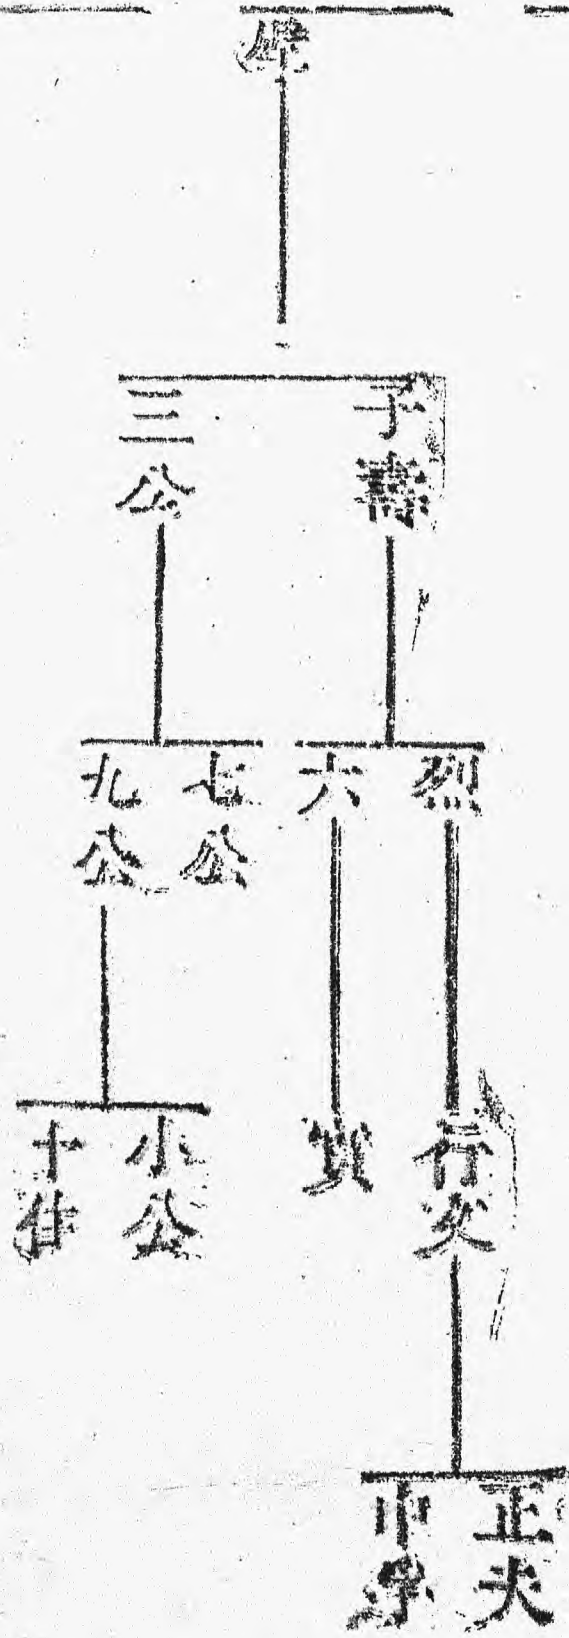 子壽
三公
烈
六
七公
九公
行父
實
小公
十住
正夫
中孚